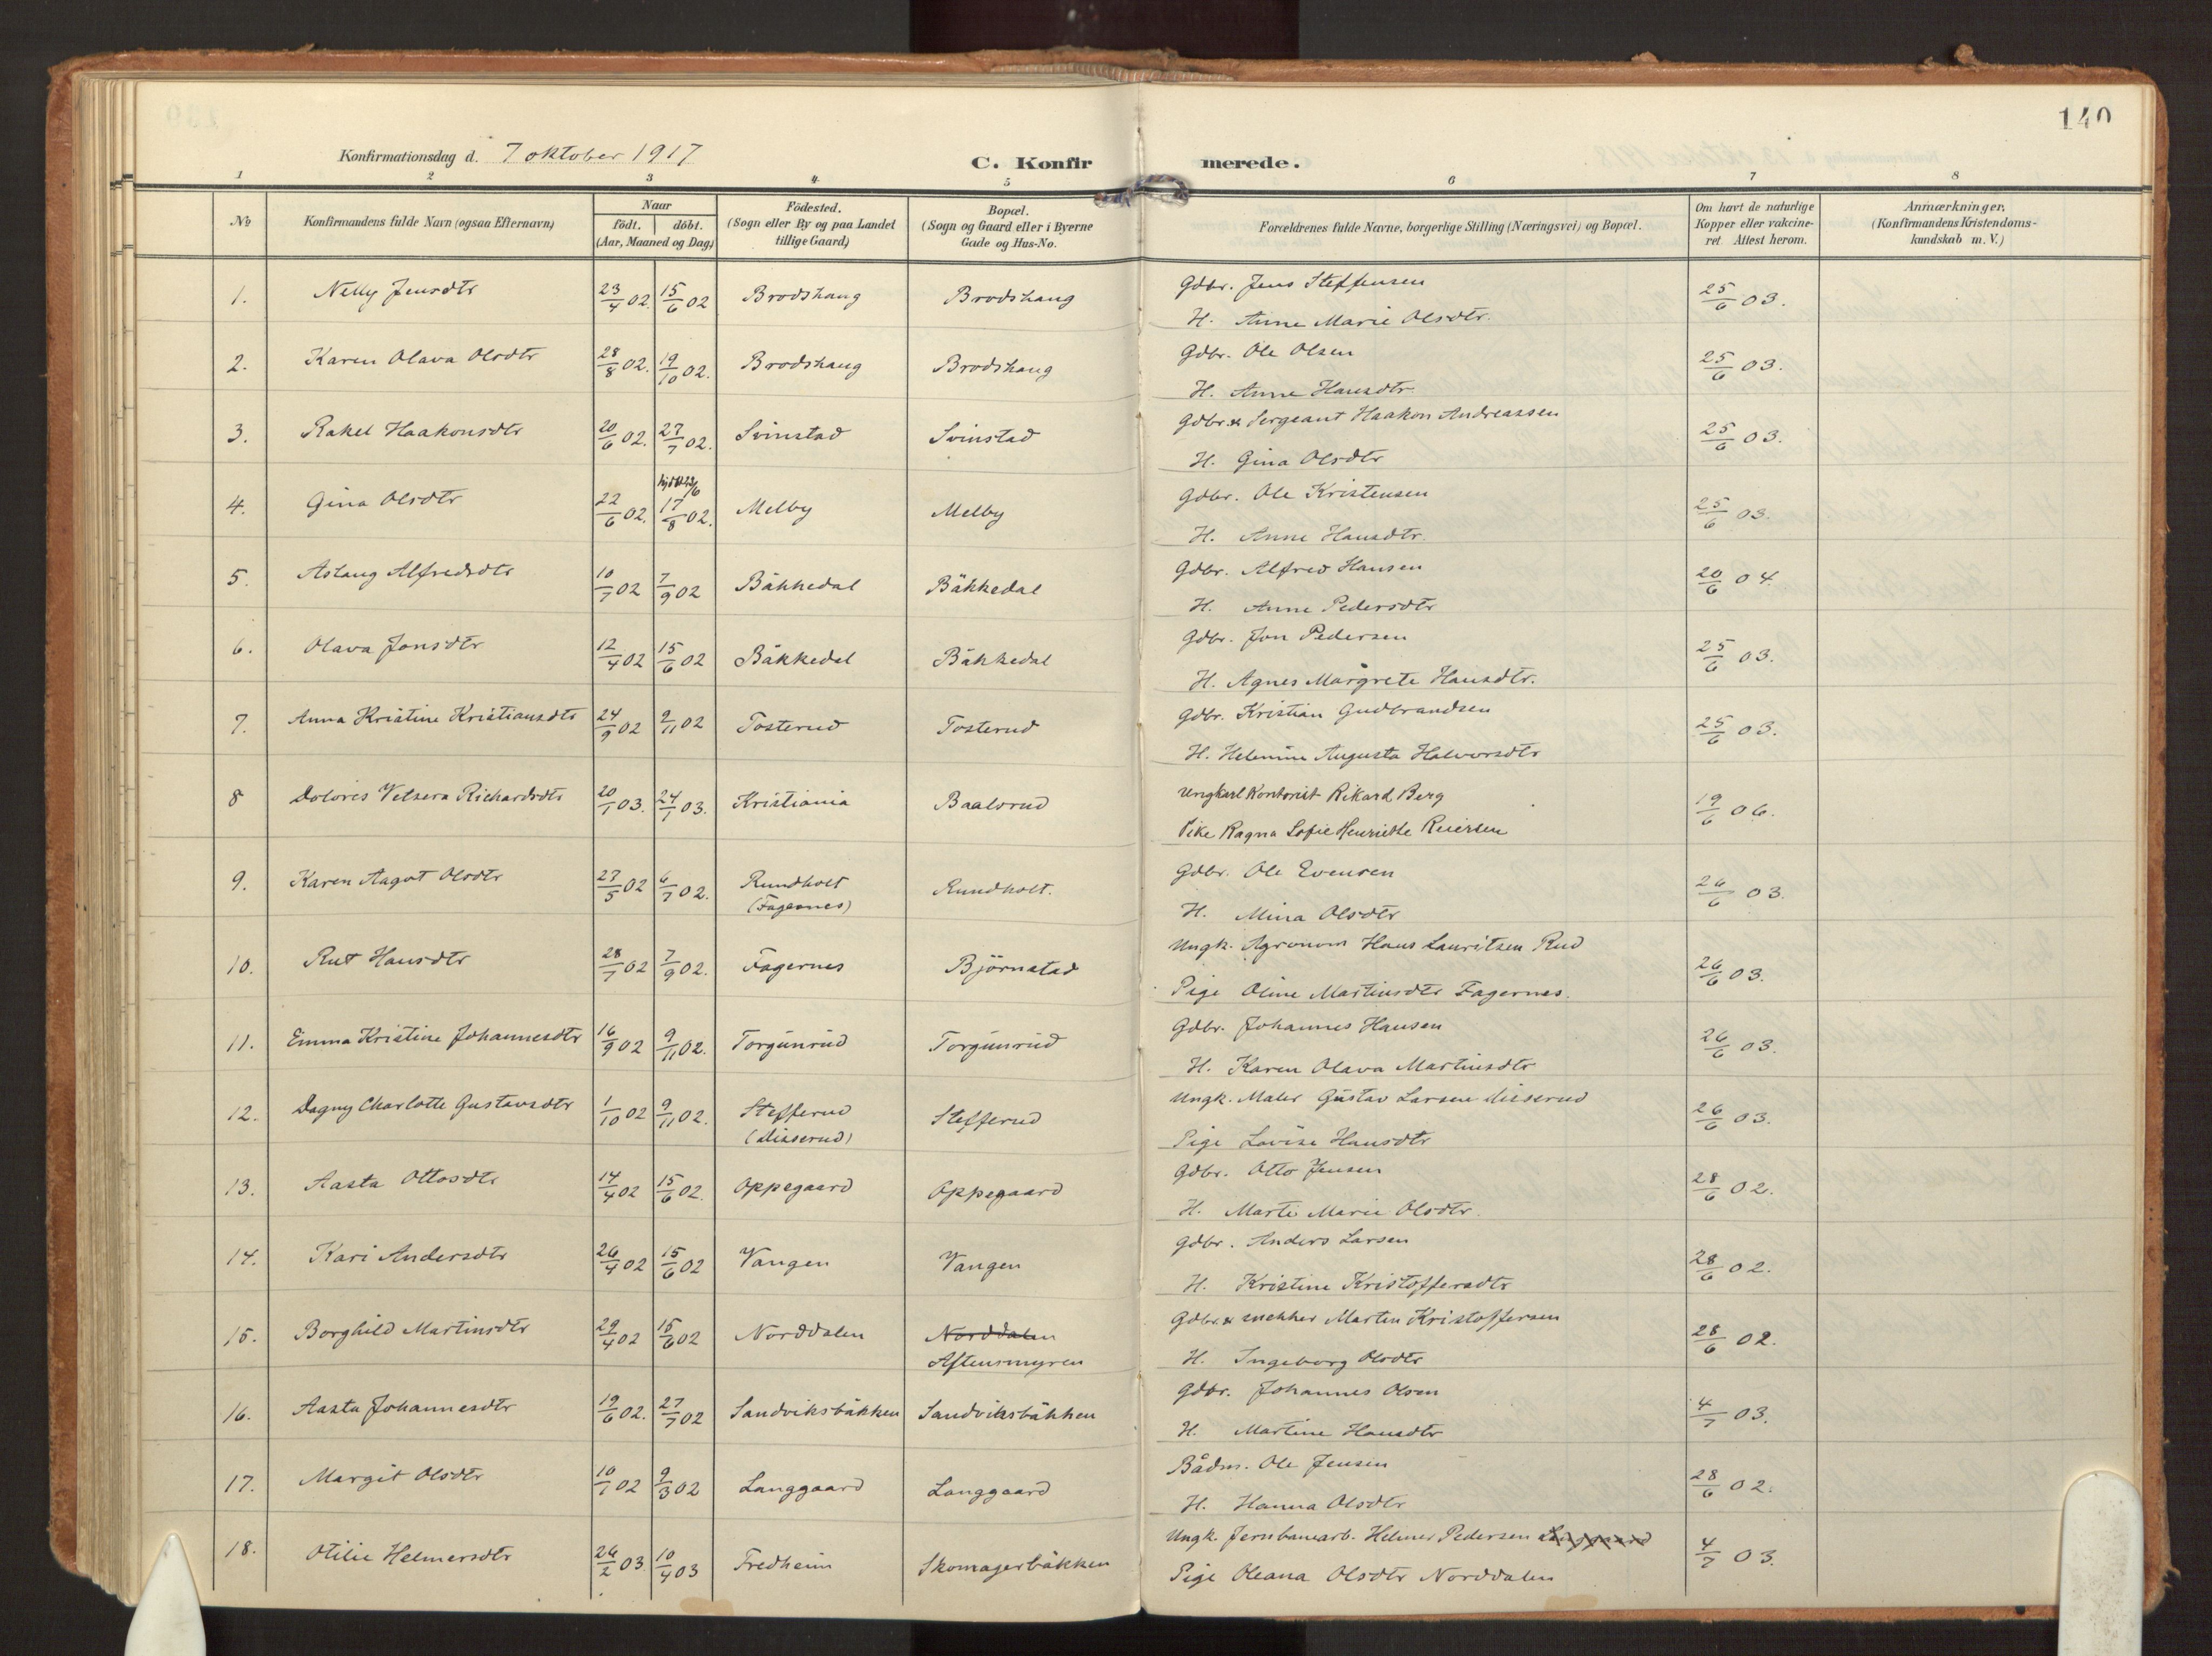 140
Konfirmationsdag d. 7 oktober 1917
C. Konfirmerede.
1 2 3 4 5 6 7 8
No
Konfirmandens fulde Navn (ogsaa Efternavn)
Naar
födt. döbt.
(Aar, Maaned og Dag)
Födested.
(Sogn eller By og paa Landet
tillige Gaard)
Bopæl.
(Sogn og Gaard eller i Byerne
Gade og Hus-No.
Forældrenes fulde Navne, borgerlige Stilling (Næringsvei) og Bopæl.
Om havt de naturlige
Kopper eller vakcine-
ret. Attest herom.
Anmærkninger,
(Konfirmandens Kristendoms-
kundskab m. V.)
1. Nelly Jensdtr 23/4 02. 15/6 02 Brodshaug Brodshaug Gdbr. Jens Steffensen 25/6 03.
H. Anne Marie Olsdtr.
2. Karen Olava Olsdtr 28/8 02. 19/10 02. Brodshaug Brodshaug Gdbr. Ole Olsen 25/6 03.
H. Anne Hansdtr.
3. Rakel Haakonsdtr 20/6 02. 27/7 02. Svinstad Svinstad Gdbr. & Sergeant Haakon Andreassen 25/6 03.
H. Gina Olsdtr
4. Gina Olsdtr 22/6 02. 17/8 02. Melby Melby Gdbr. Ole Kristensen 25/6 03.
H. Anne Hansdtr.
5. Aslaug Alfredsdtr 10/7 02 7/9 02 Bäkkedal Bäkkedal Gdbr. Alfred Hansen 20/6 04.
H. Anne Pedersdtr
6. Olava Jonsdtr 12/4 02 15/6 02 Bäkkedal Bäkkedal Gdbr. Jon Pedersen 25/6 03.
H. Agnes Margrete Hansdtr.
7. Anna Kristine Kristiansdtr 24/9 02 9/11 02 Tosterud Tosterud Gdbr. Kristian Gudbrandsen 25/6 03.
H. Helmine Augusta Halvorsdtr
8 Dolores Vetsera Richardsdtr 20/1 03. 24/7 03. Kristiania Baalsrud Ungkarl Kontorist Rikard Berg 19/6 06.
Pike Ragna Sofie Henriette Reiersen
9. Karen Aagot Olsdtr 27/5 02 6/7 02. Rundholt Rundholt. Gdbr. Ole Evensen 26/6 03.
(Fagernes)
H. Mina Olsdtr
10. Rut Hansdtr 28/7 02 7/9 02. Fagernes Björnstad Ungk. Agronom Hans Lauritsen Rud 26/6 03.
Pige Oline Martinsdtr Fagernes.
11. Emma Kristine Johannesdtr 16/9 02 9/11 02. Torgunrud Torgunrud Gdbr. Johannes Hansen 26/6 03.
H. Karen Olava Martinsdtr
12. Dagny Charlotte Gustavsdtr 1/10 02 9/11 02. Stefferud Stefferud Ungk. Maler Gustav Larsen Lisserud 26/6 03.
(Lisserud)
Pige Lovise Hansdtr
13. Aasta Ottosdtr 14/4 02 15/6 02. Oppegaard Oppegaard Gdbr. Otto Jensen 28/6 02.
H. Marte Marie Olsdtr.
14. Kari Andersdtr 26/4 02 15/6 02 Vangen Vangen Gdbr. Anders Larsen 28/6 02.
H. Kristine Kristoffersdtr
15. Borghild Martinsdtr 29/4 02 15/6 02 Norddalen Norddalen Gdbr. & snekker Martin Kristoffersen 28/6 02.
Aftensmyren
H. Ingeborg Olsdtr
16. Aasta Johannesdtr 19/6 02. 27/7 02 Sandviksbäkken Sandviksbäkken Gdbr. Johannes Olsen 4/7 03.
H. Martine Hansdtr
17. Margit Olsdtr 10/1 02 9/3 02 Langgaard Langgaard Bådm. Ole Jensen 28/6 02.
H. Hanna Olsdtr
18. Otilie Helmersdtr 26/2 03. 10/4 03 Fredheim Skomagerbäkken Ungk. Jernbanearb. Helmer Pedersen 4/7 03.
Pige Oleana Olsdtr Norddalen